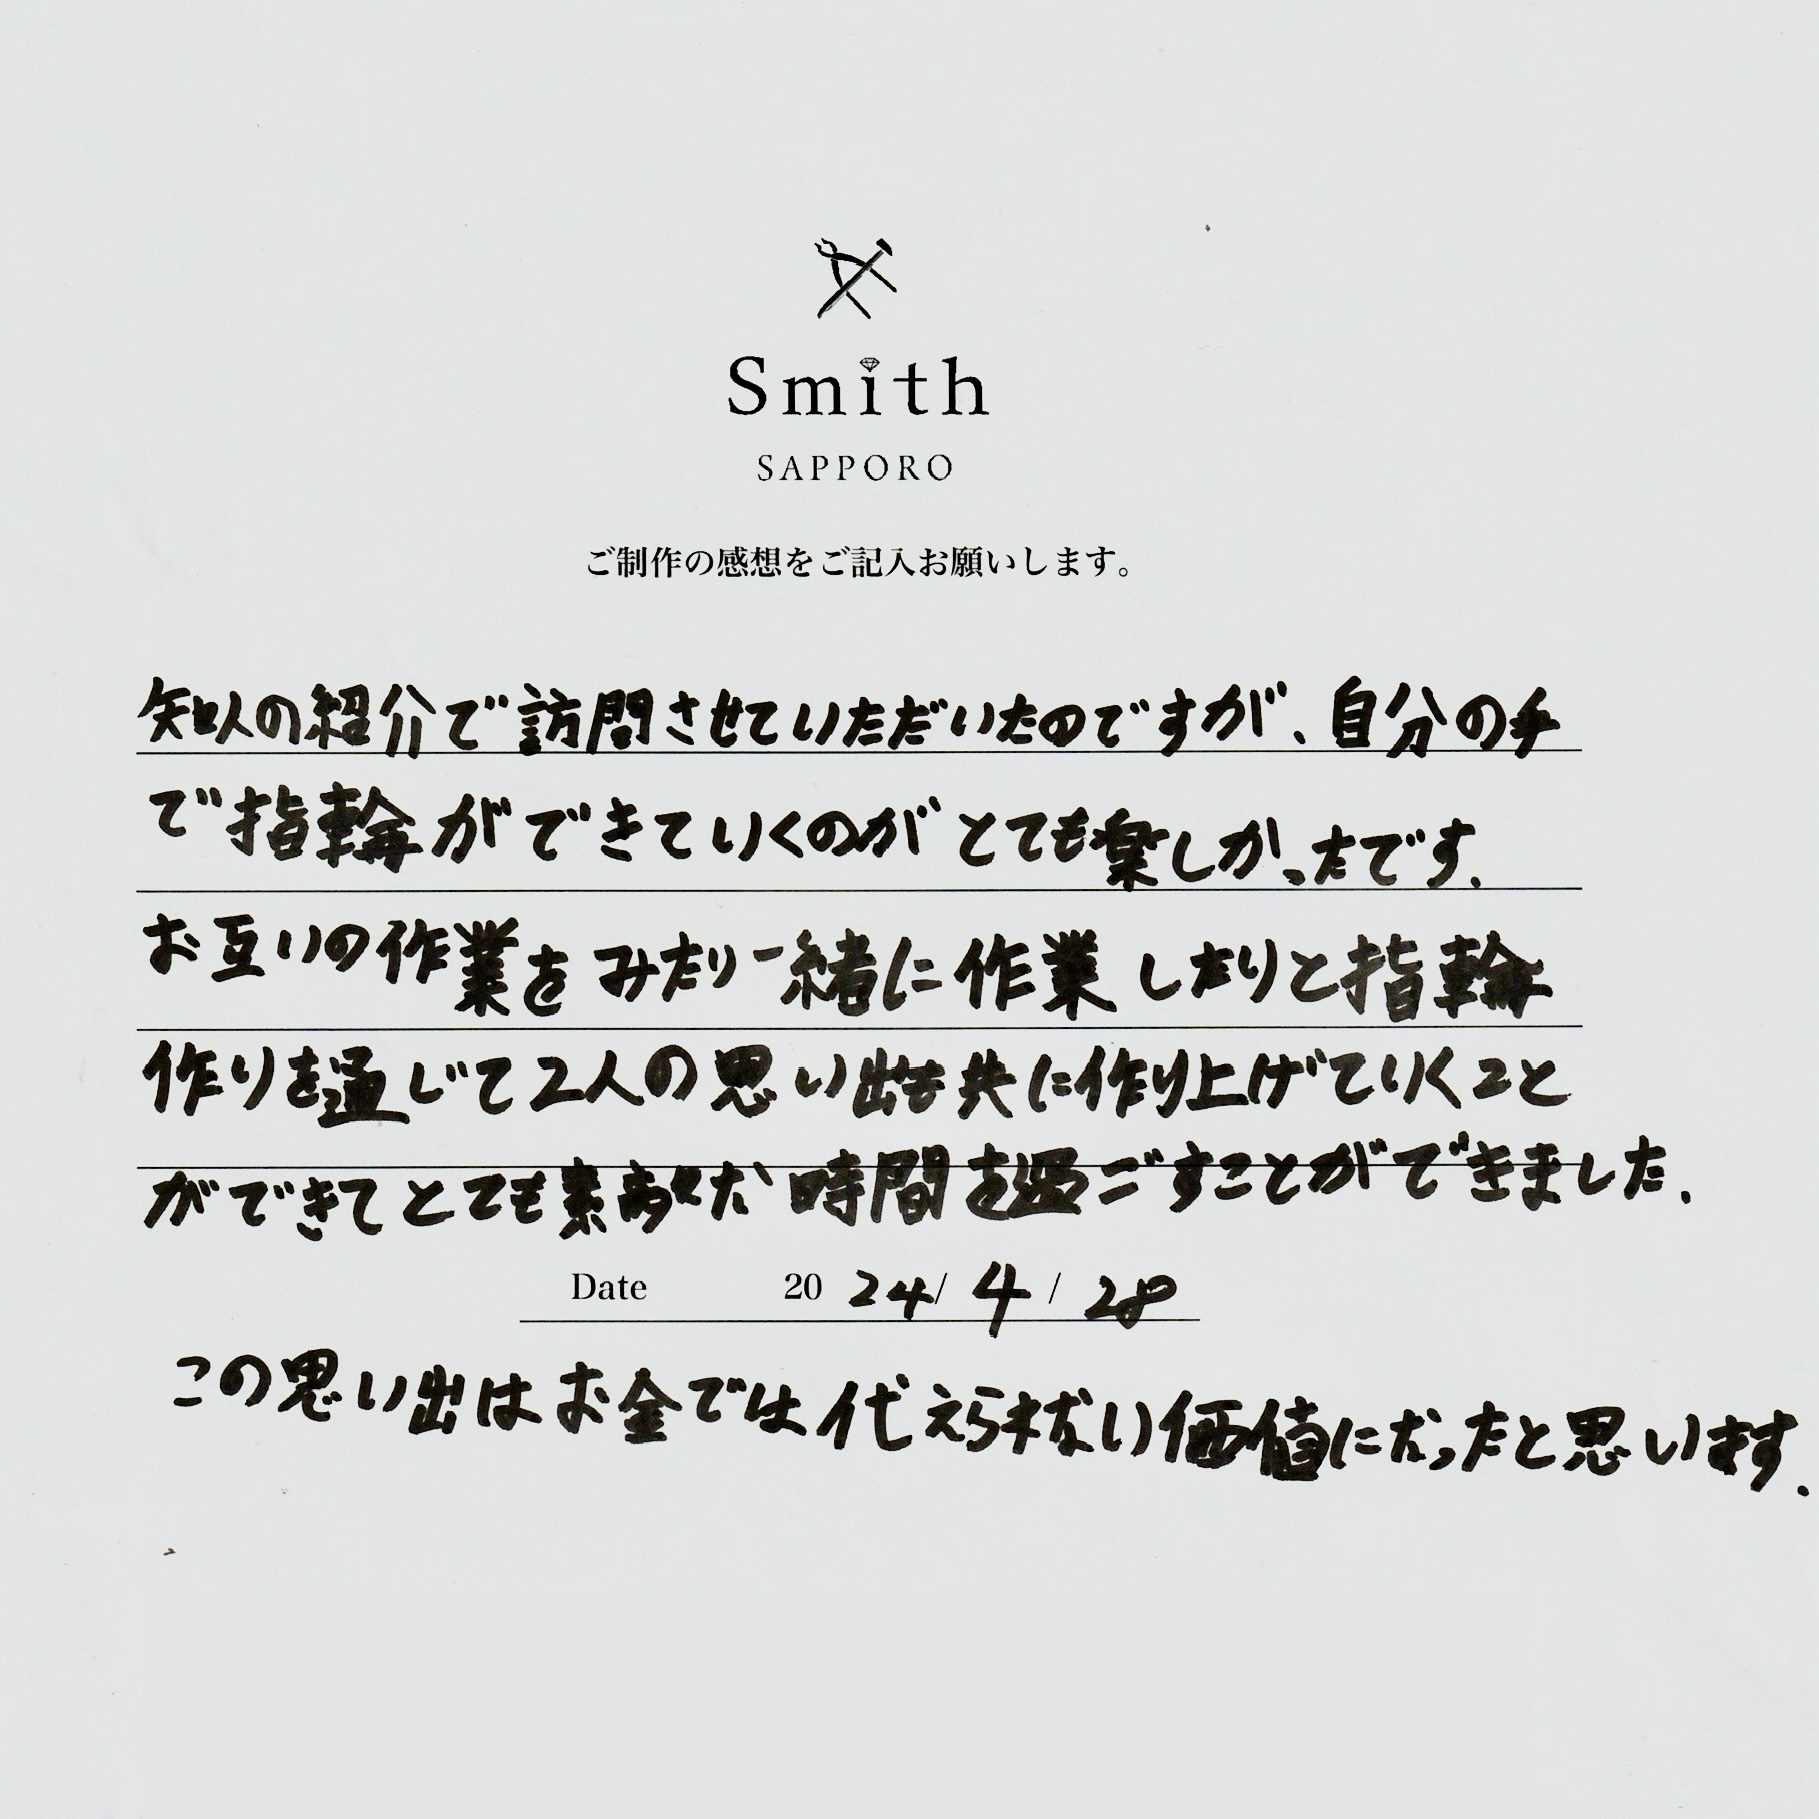 Smith
SAPPORO
ご制作の感想をご記入お願いします。
知人の紹介で訪問させていただいたのですが、自分の手
で指輪ができていくのがとても楽しかったです.
お互いの作業をみたり一緒に作業したりと指輪
作りを通じて2人の思い出も共に作り上げていくこと
ができてとても素敵な時間を過ごすことができました.
Date 2024/4/28
この思い出はお金では代えられない価値になったと思います.